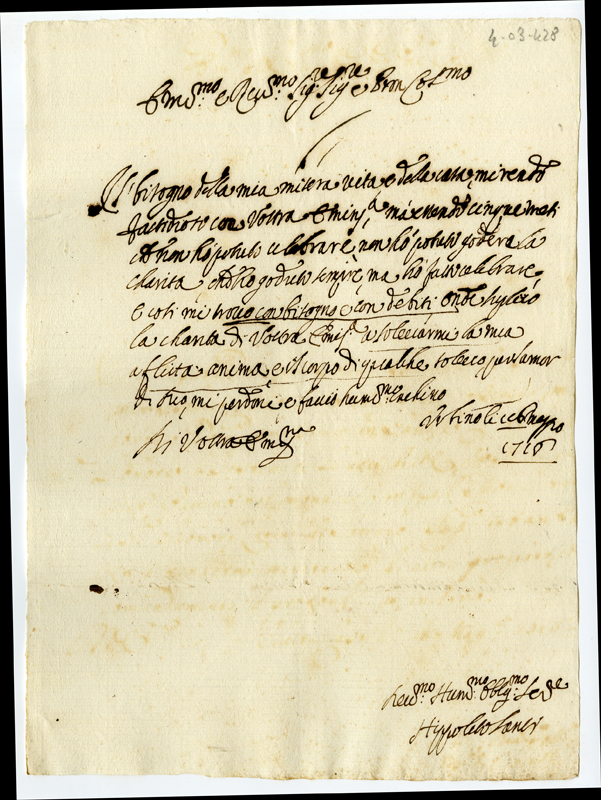 4-03-428
Em.mo e Rev.mo Sig.re Sig.re e Pron Col.mo
Il bisogno della mia misera vita, e della casa, mi rende
fastidioso con Vostra Emin.za, ma essendo cinque mesi
che non hò potuto celebrare, non hò potuto godere la
charità, che hò goduto sempre, ma hò fatto celebrare,
e così mi trovo con bisogno e con debiti onde supplico
la charità di Vostra Emin.za a solleciarmi la mia
aflicta anima e il corpo di qualche soldo per l'amor
di Dio, mi perdoni, e faccio hum.me inchino
Di Vostra Em.za
Urbino li Maggio
1716
Dev.mo Hum.mo Obblig.mo Ser.re
Hippolito